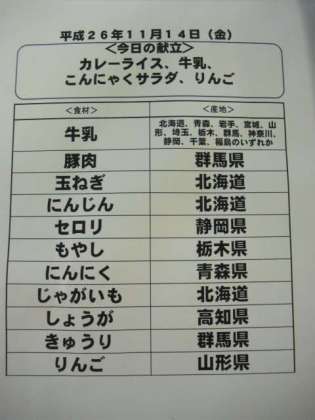 平成26年11月14日（金）
＜今日の献立＞
カレーライス、牛乳、
こんにゃくサラダ、りんご
＜食材＞ ＜産地＞
牛乳 北海道、青森、岩手、宮城、山
形、埼玉、栃木、群馬、神奈川、
静岡、千葉、福島のいずれか
豚肉 群馬県
玉ねぎ 北海道
にんじん 北海道
セロリ 静岡県
もやし 栃木県
にんにく 青森県
じゃがいも 北海道
しょうが 高知県
きゅうり 群馬県
りんご 山形県